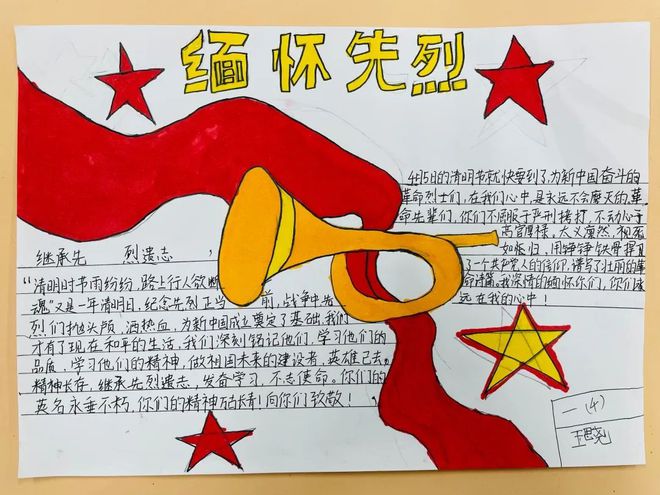 缅怀先烈
继承先 烈遗志
"清明时节雨纷纷,路上行人欲断
魂"又是一年清明日,纪念先烈正当 前,战争中先
烈们抛头颅,洒热血,为新中国成立奠定了基础,我们
才有了现在和平的生活,我们深刻铭记他们,学习他们的
品质,学习他们的精神,做祖国未来的建设者,英雄已去,
精神长存,继承先烈遗志,发奋学习,不忘使命。你们的
英名永垂不朽,你们的精神万古长青!向你们致敬!
4月5日的清明节就快要到了,为新中国奋斗的
革命烈士们,在我们心中,是永远不会磨灭的,革
命先辈们,你们不屈服于严刑拷打,不动心于
高官厚禄,大义凛然,视死
如归,用铮铮铁骨捍卫
了一个共产党人的信仰,谱写了壮丽的革
命诗篇。我深情的缅怀你们,你们永
远在我的心中!
一(4)
王